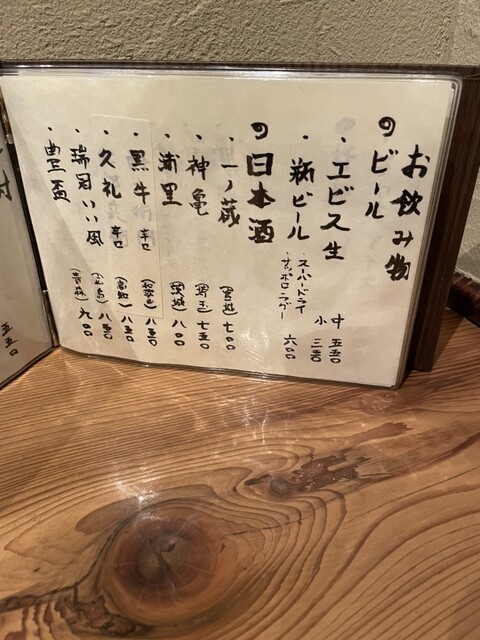 お飲み物
ビール
・エビス生 中 五五〇
小 三五〇
・瓶ビール スーパードライ 六〇〇
サッポロラガー
日本酒
・一ノ蔵 (宮城) 七〇〇
・神亀 (埼玉) 七五〇
・浦里 (茨城) 八〇〇
・黒牛 辛口 (和歌山) 八五〇
・久礼 辛口 (高知) 八五〇
・瑞冠 いい風 (広島) 八五〇
・豊盃 (青森) 九〇〇
五五〇